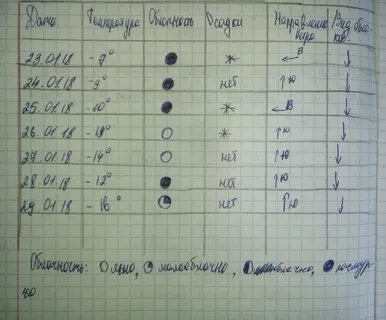 Дата Температура Облачность Осадки Направление ветра Вид облаков
23.01.18 -7° ● * ← В ↓
24.01.18 -9° ● нет ↑ю ↓
25.01.18 -10° ● * ← В ↓
26.01.18 ○ * ↑ю ↓
27.01.18 -14° ○ нет ↑ю ↓
28.01.18 -12° ● нет ↑ю ↓
29.01.18 -16° ◔ нет ↑ю ↓
Облачность: ○ ясно, малооблачно, облачно, ● пасмур-
но